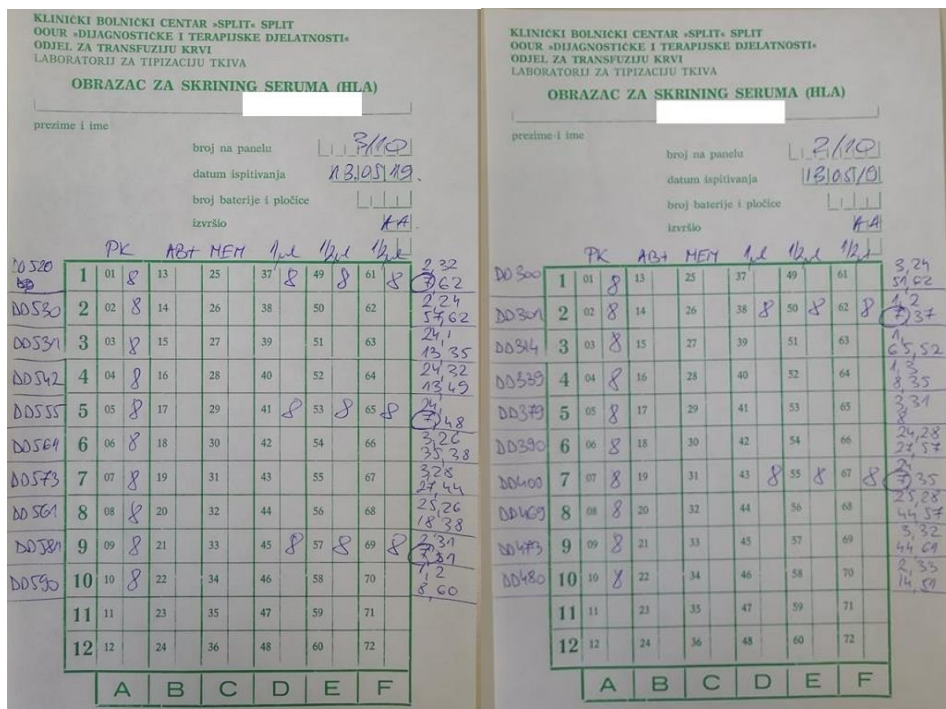 KLINIČKI BOLNIČKI CENTAR »SPLIT« SPLIT
OOUR »DIJAGNOSTIČKE I TERAPIJSKE DJELATNOSTI«
ODJEL ZA TRANSFUZIJU KRVI
LABORATORIJ ZA TIPIZACIJU TKIVA
OBRAZAC ZA SKRINING SERUMA (HLA)
prezime i ime
broj na panelu 3/10
datum ispitivanja 13.05.19.
broj baterije i pločice
izvršio AA
PK AB+ MEM 1µl 1/2µl 1/2µl
DD520 1 01 8 13 25 37 8 49 8 61 8 2,32
7,62
DD530 2 02 8 14 26 38 50 62 2,24
57,62
DD531 3 03 8 15 27 39 51 63 24,1
13,35
DD542 4 04 8 16 28 40 52 64 24,32
13,49
DD555 5 05 8 17 29 41 8 53 8 65 8 24,
7,48
DD564 6 06 8 18 30 42 54 66 3,26
35,38
DD573 7 07 8 19 31 43 55 67 3,28
27,44
DD561 8 08 8 20 32 44 56 68 25,26
18,38
DD581 9 09 8 21 33 45 8 57 8 69 8 2,31
7,51
DD590 10 10 8 22 34 46 58 70 1,2
8,60
11 11 23 35 47 59 71
12 12 24 36 48 60 72
A B C D E F
KLINIČKI BOLNIČKI CENTAR »SPLIT« SPLIT
OOUR »DIJAGNOSTIČKE I TERAPIJSKE DJELATNOSTI«
ODJEL ZA TRANSFUZIJU KRVI
LABORATORIJ ZA TIPIZACIJU TKIVA
OBRAZAC ZA SKRINING SERUMA (HLA)
prezime i ime
broj na panelu 2/10
datum ispitivanja 13.05.19
broj baterije i pločice
izvršio AA
PK AB+ MEM 1µl 1/2µl 1/2µl
DD300 1 01 8 13 25 37 49 61 3,24
51,62
DD301 2 02 8 14 26 38 8 50 8 62 8 1,2
7,37
DD314 3 03 8 15 27 39 51 63 1,
65,52
DD339 4 04 8 16 28 40 52 64 1,3
8,35
DD379 5 05 8 17 29 41 53 65 3,31
8
DD390 6 06 8 18 30 42 54 66 24,28
27,57
DD400 7 07 8 19 31 43 8 55 8 67 8 24
7,35
DD469 8 08 8 20 32 44 56 68 25,28
44,57
DD473 9 09 8 21 33 45 57 69 3,32
44,61
DD480 10 10 8 22 34 46 58 70 2,33
14,51
11 11 23 35 47 59 71
12 12 24 36 48 60 72
A B C D E F